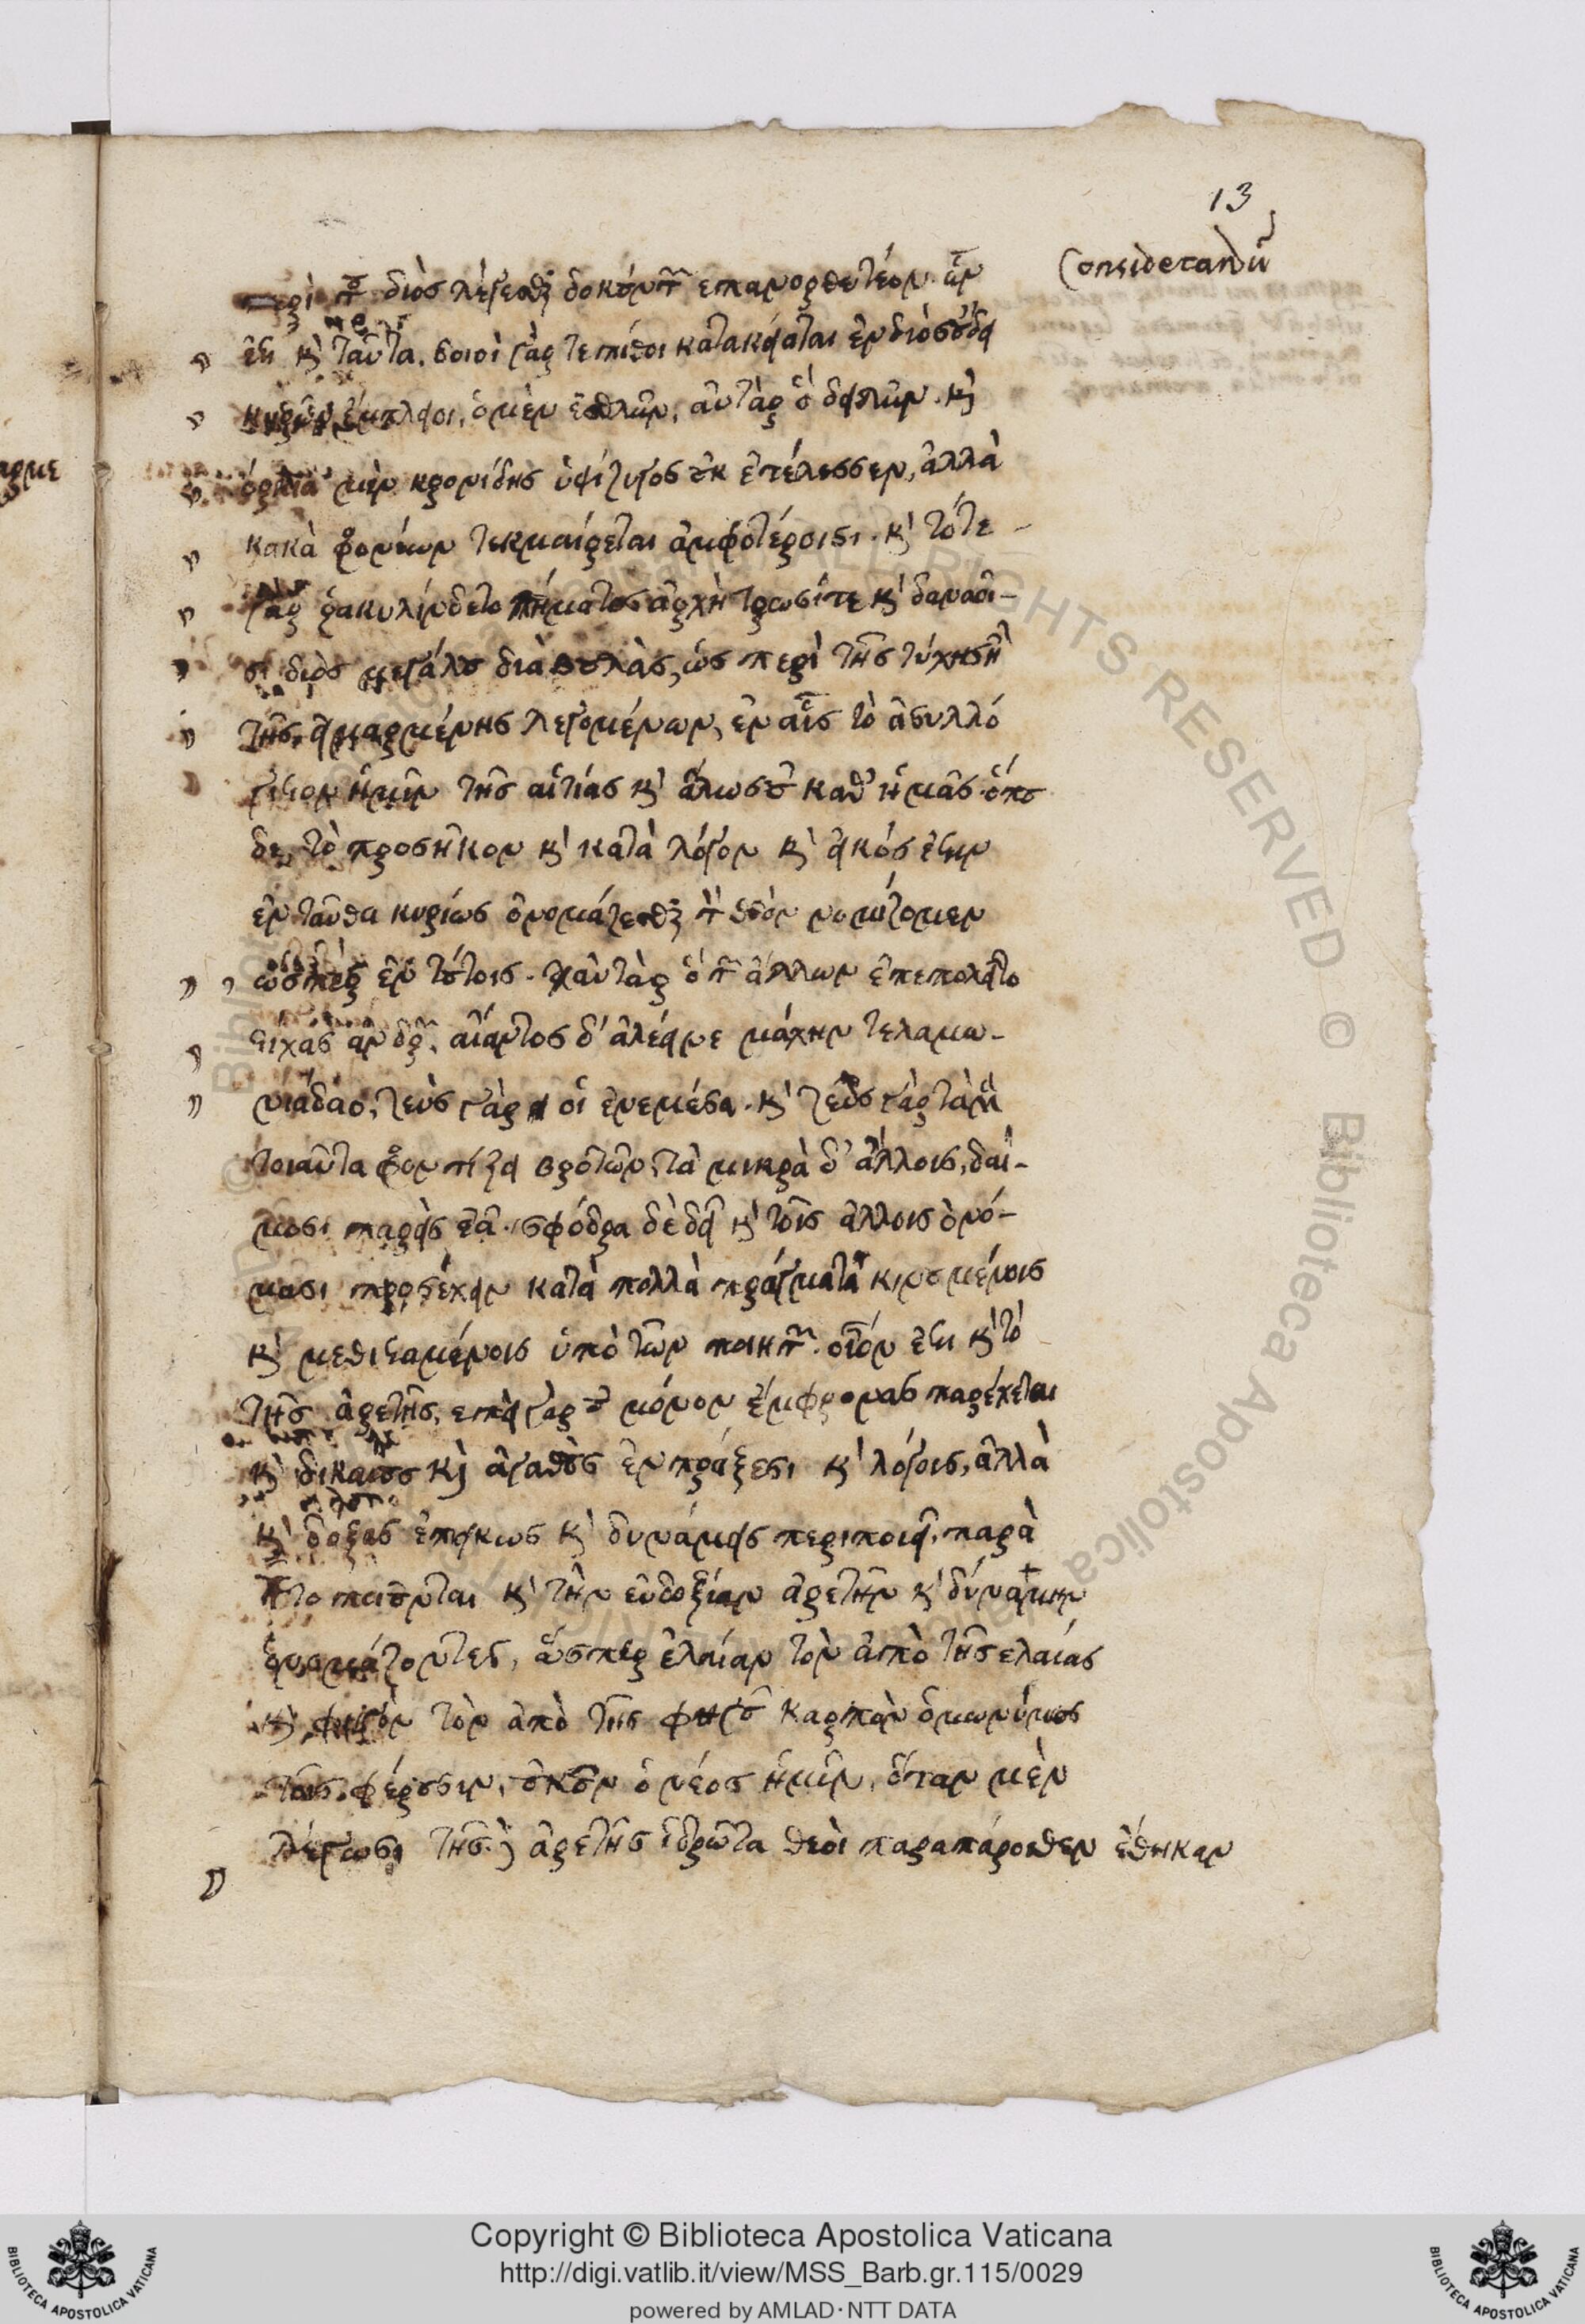 13
Considerandũ
περὶ τοῦ διὸς λέγεσθαι δοκούντων ἐπανορθωτέον. ὧν
ἐστι καὶ ταῦτα. δοιοὶ γάρ τε πίθοι κατακείαται ἐν διὸς οὔδει
κηρῶν ἔμπλειοι, ὁ μὲν ἐσθλῶν, αὐτὰρ ὁ δειλῶν. καὶ
ὅρκια μὲν κρονίδης ὑψίζυγος οὐκ ἐτέλεσσεν, ἀλλὰ
κακὰ φρονέων τεκμαίρεται ἀμφοτέροισι. καὶ τότε
γάρ ῥα κυλίνδετο πήματος ἀρχὴ τρωσί τε καὶ δαναοῖ-
σι διὸς μεγάλου διὰ βουλὰς, ὡς περὶ τῆς τύχης ἢ
τῆς εἱμαρμένης λεγομένων, ἐν αἷς τὸ ἀσυλλό
γιστον ἡμῖν τῆς αἰτίας καὶ ὅλως οὐ καθ' ἡμᾶς. ὅπου
δὲ τὸ προσῆκον καὶ κατὰ λόγον καὶ εἰκός ἐστιν
ἐνταῦθα κυρίως ὀνομάζεσθαι τὸν θεὸν νομίζομεν
ὥσπερ ἐν τούτοις. αὐτὰρ ὁ τῶν ἄλλων ἐπεπωλεῖτο
στίχας ἀνδρῶν. αἴαντος δ' ἀλέεινε μάχην τελαμω-
νιάδαο, ζεὺς γάρ οἱ ἐνεμέσα. καὶ ζεὺς γὰρ τὰ μὲν
τοιαῦτα φροντίζει βροτῶν, τὰ μικρὰ δ' ἄλλοις, δαί-
μοσι παρεὶς ἐᾷ. σφόδρα δὲ δεῖ καὶ τοῖς ἄλλοις ὀνό-
μασι προσέχειν κατὰ πολλὰ πράγματα κινουμένοις
καὶ μεθισταμένοις ὑπὸ τῶν ποιητῶν. οἷόν ἐστι καὶ τὸ
τῆς ἀρετῆς. ἐπεὶ γὰρ οὐ μόνον ἔμφρονας παρέχεται
καὶ δικαίους καὶ ἀγαθοὺς ἐν πράξεσι καὶ λόγοις, ἀλλὰ
καὶ δόξας ἐπιεικῶς καὶ δυνάμεις περιποιεῖ, παρὰ
τοῦτο ποιοῦνται καὶ τὴν εὐδοξίαν ἀρετὴν καὶ δύναμιν
ὀνομάζοντες, ὥσπερ ἐλαίαν τὸν ἀπὸ τῆς ἐλαίας
καὶ φηγὸν τὸν ἀπὸ τῆς φηγοῦ καρπὸν ὁμωνύμως
τοῖς φέρουσιν, οὐκοῦν ὁ νέος ἡμῖν, ὅταν μὲν
λέγωσι τῆς δ' ἀρετῆς ἱδρῶτα θεοὶ παραπάροιθεν ἔθηκαν